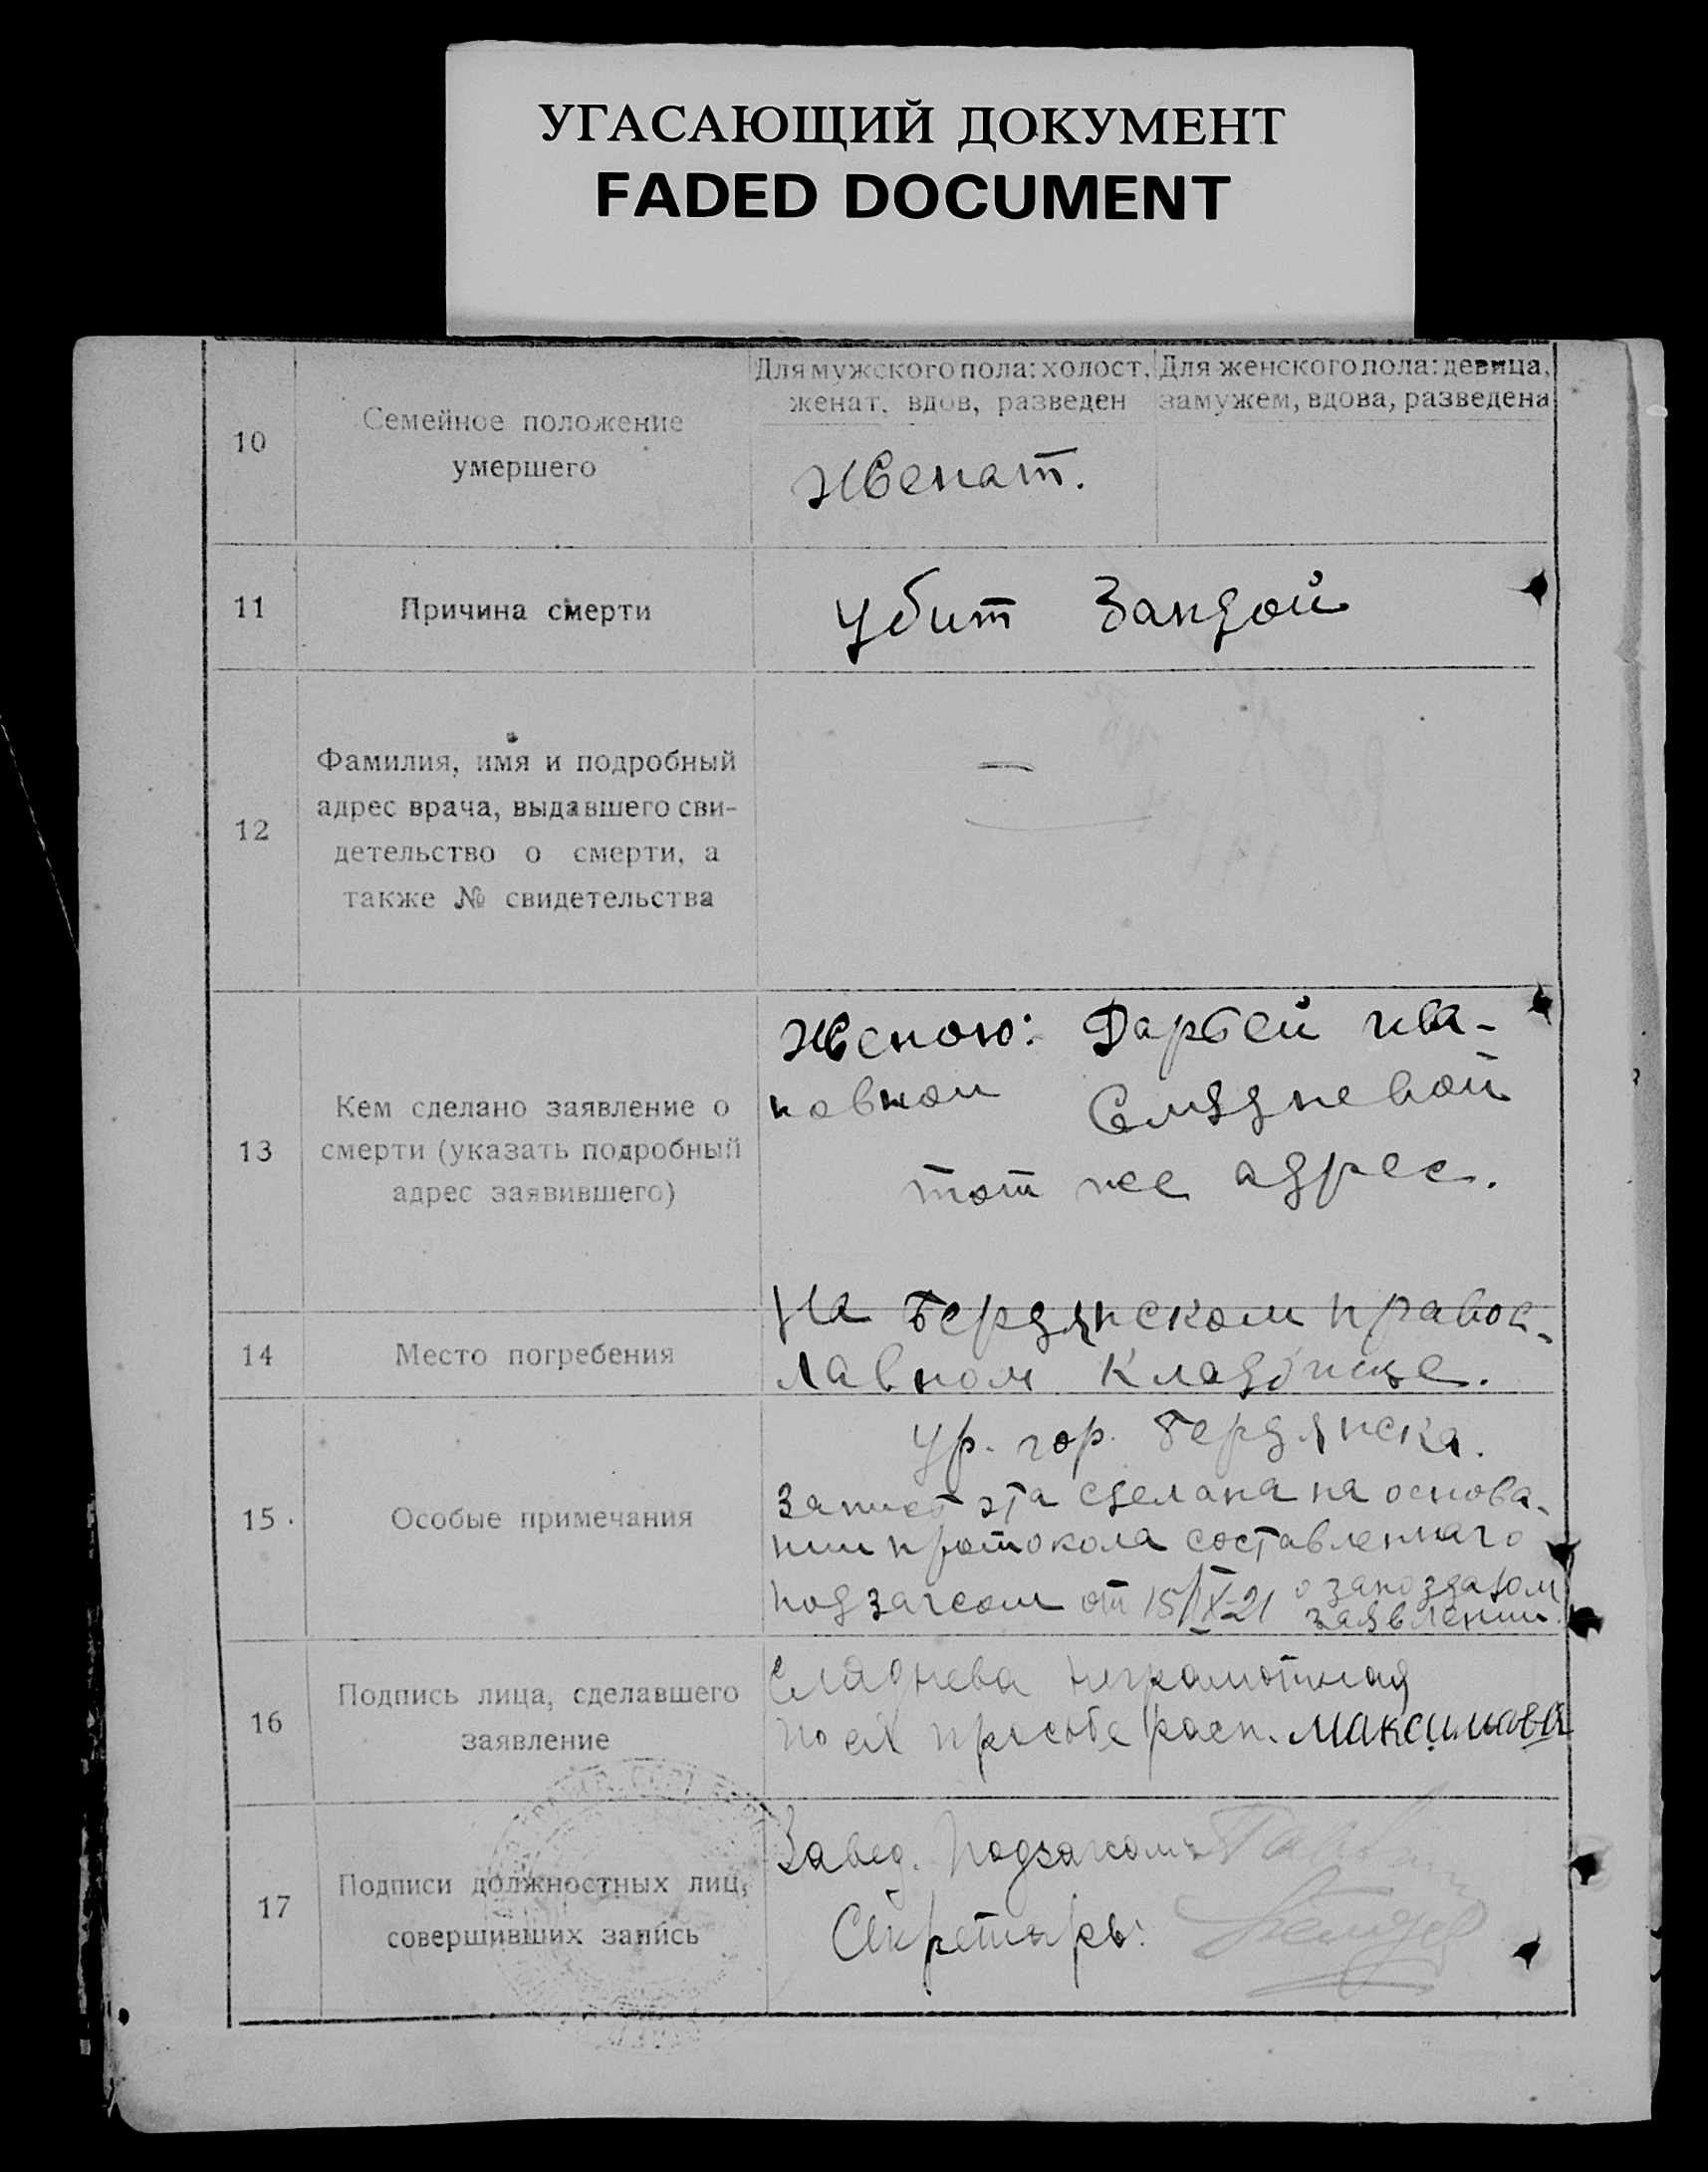 УГАСАЮЩИЙ ДОКУМЕНТ
FADED DOCUMENT
10
Семейное положение
умершего
Для мужского пола: холост,
женат, вдов, разведен
Для женского пола: девица,
замужем, вдова, разведена
Женат.
11
Причина смерти
Убит Бандой
12
Фамилия, имя и подробный
адрес врача, выдавшего сви-
детельство о смерти, а
также № свидетельства
—
13
Кем сделано заявление о
смерти (указать подробный
адрес заявившего)
Женою: Дарьей Ива-
новной Слядневой
тот же адрес.
14
Место погребения
На Бердянском правос-
лавном Кладбище.
15.
Особые примечания
Ур. гор. Бердянска.
Запись эта сделана на основа-
нии протокола составленного
подзагсом от 15/IX-21 о запоздалом
заявлении
16
Подпись лица, сделавшего
заявление
Сляднева неграмотная
по ея просьбе расп. Максимова
17
Подписи должностных лиц,
совершивших запись
Завед. Подзагсом:
Секретарь: